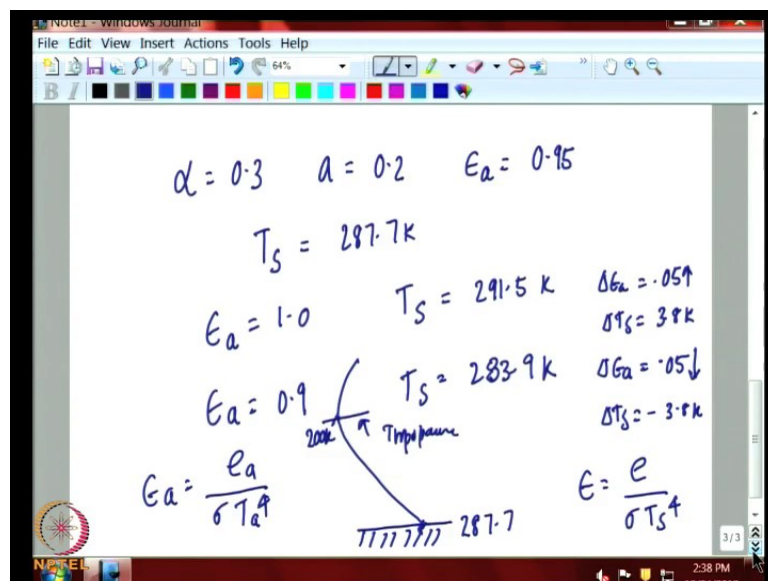 Note1 - Windows Journal
File Edit View Insert Actions Tools Help
64%
B I
α = 0.3 a = 0.2 ϵa = 0.95
Ts = 287.7K
ϵa = 1.0 Ts = 291.5 K Δϵa = .05↑
ΔTs = 3.8K
ϵa = 0.9 Ts = 283.9K Δϵa = .05↓
ΔTs = -3.8K
200K Tropopause
ϵa = ea / σTa⁴ ϵ = e / σTs⁴
287.7
3/3
NPTEL
2:38 PM